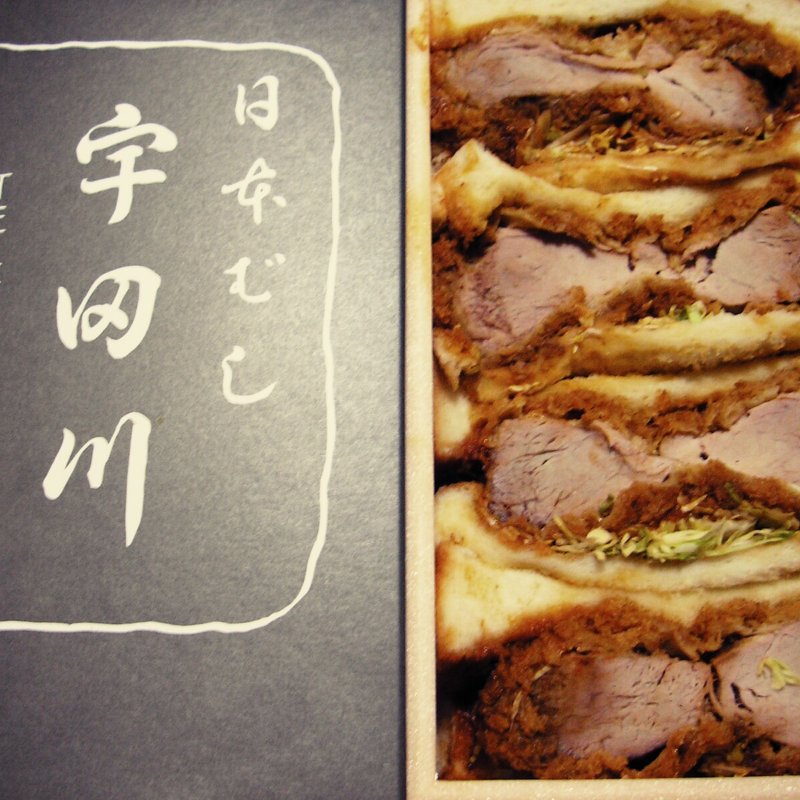 日本ばし
宇田川